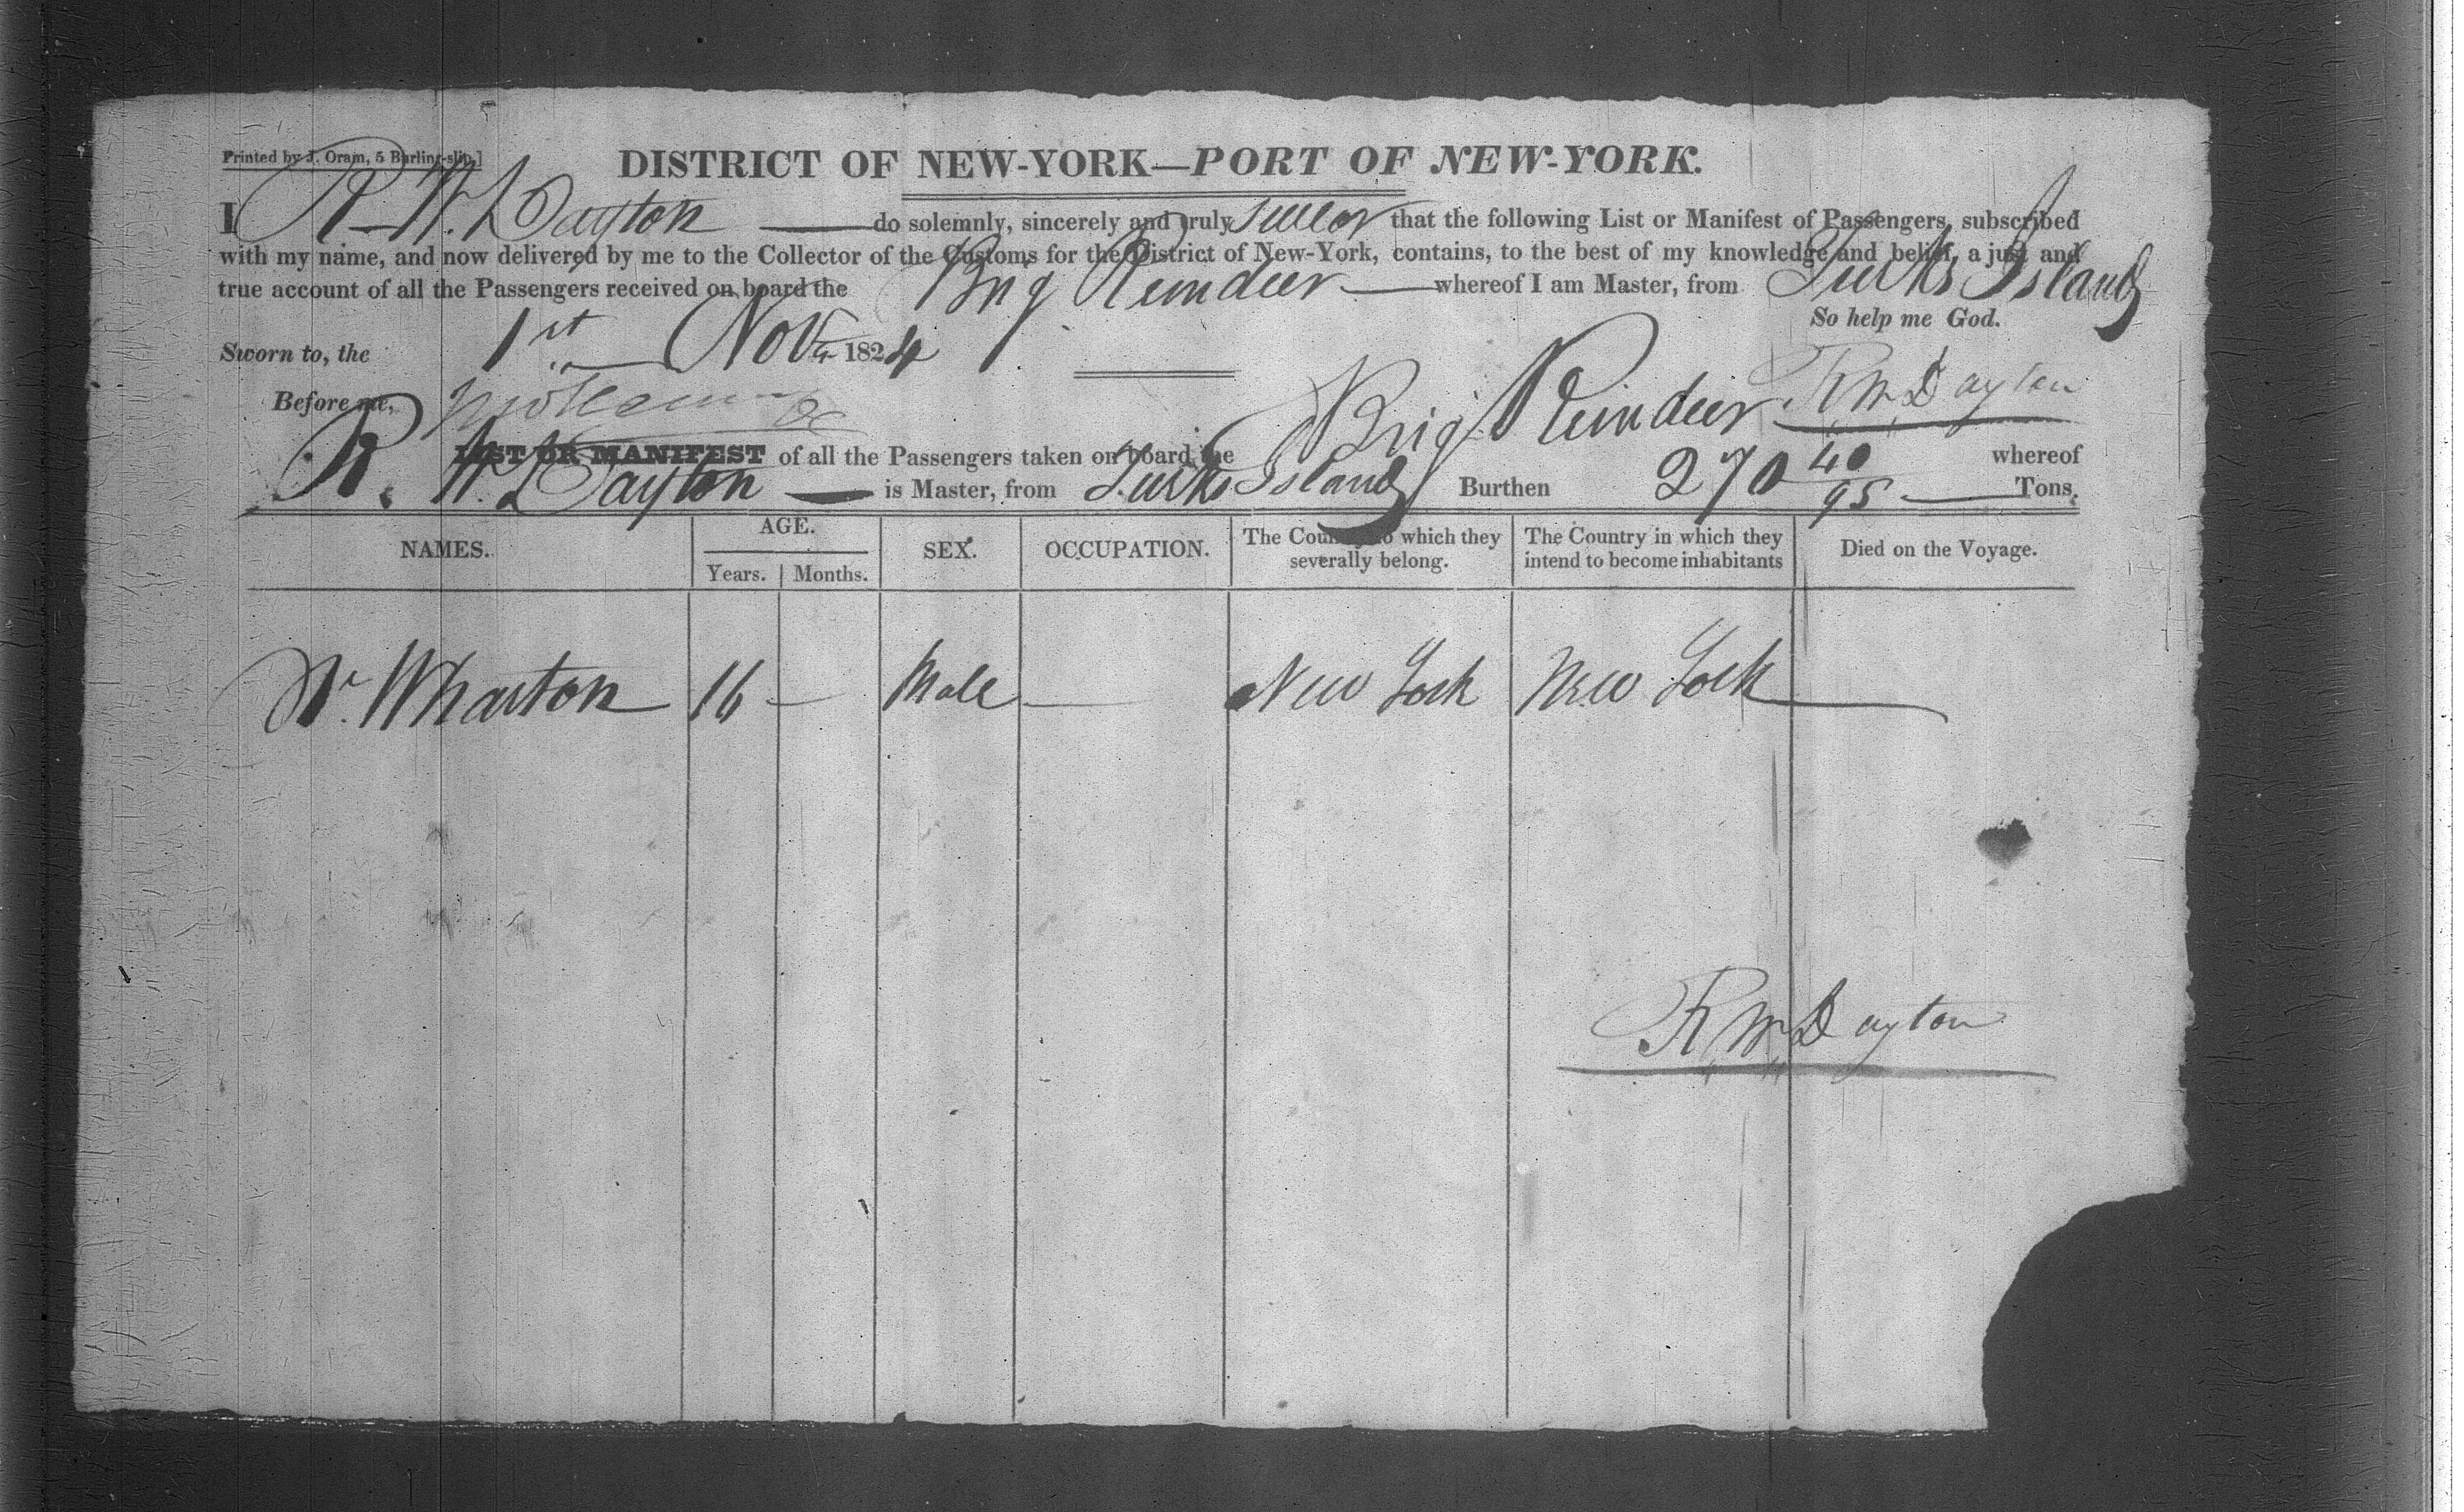 Printed by J. Oram, 5 Burling-slip.]
DISTRICT OF NEW-YORK—PORT OF NEW-YORK.
I R. W. Dayton — do solemnly, sincerely and truly swear that the following List or Manifest of Passengers, subscribed
with my name, and now delivered by me to the Collector of the Customs for the District of New-York, contains, to the best of my knowledge and belief, a just and
true account of all the Passengers received on board the Brig Reindeer — whereof I am Master, from Turks Island
So help me God.
Sworn to, the 1st Nov. 1824
Before me,
R W Dayton
LIST OR MANIFEST of all the Passengers taken on board the Brig Reindeer whereof
R. W. Dayton — is Master, from Turks Island Burthen 270 40/95 — Tons.
NAMES. AGE. Years. Months. SEX. OCCUPATION. The Country to which they severally belong. The Country in which they intend to become inhabitants Died on the Voyage.
Wharton 16 — Male — New York New York —
R W Dayton